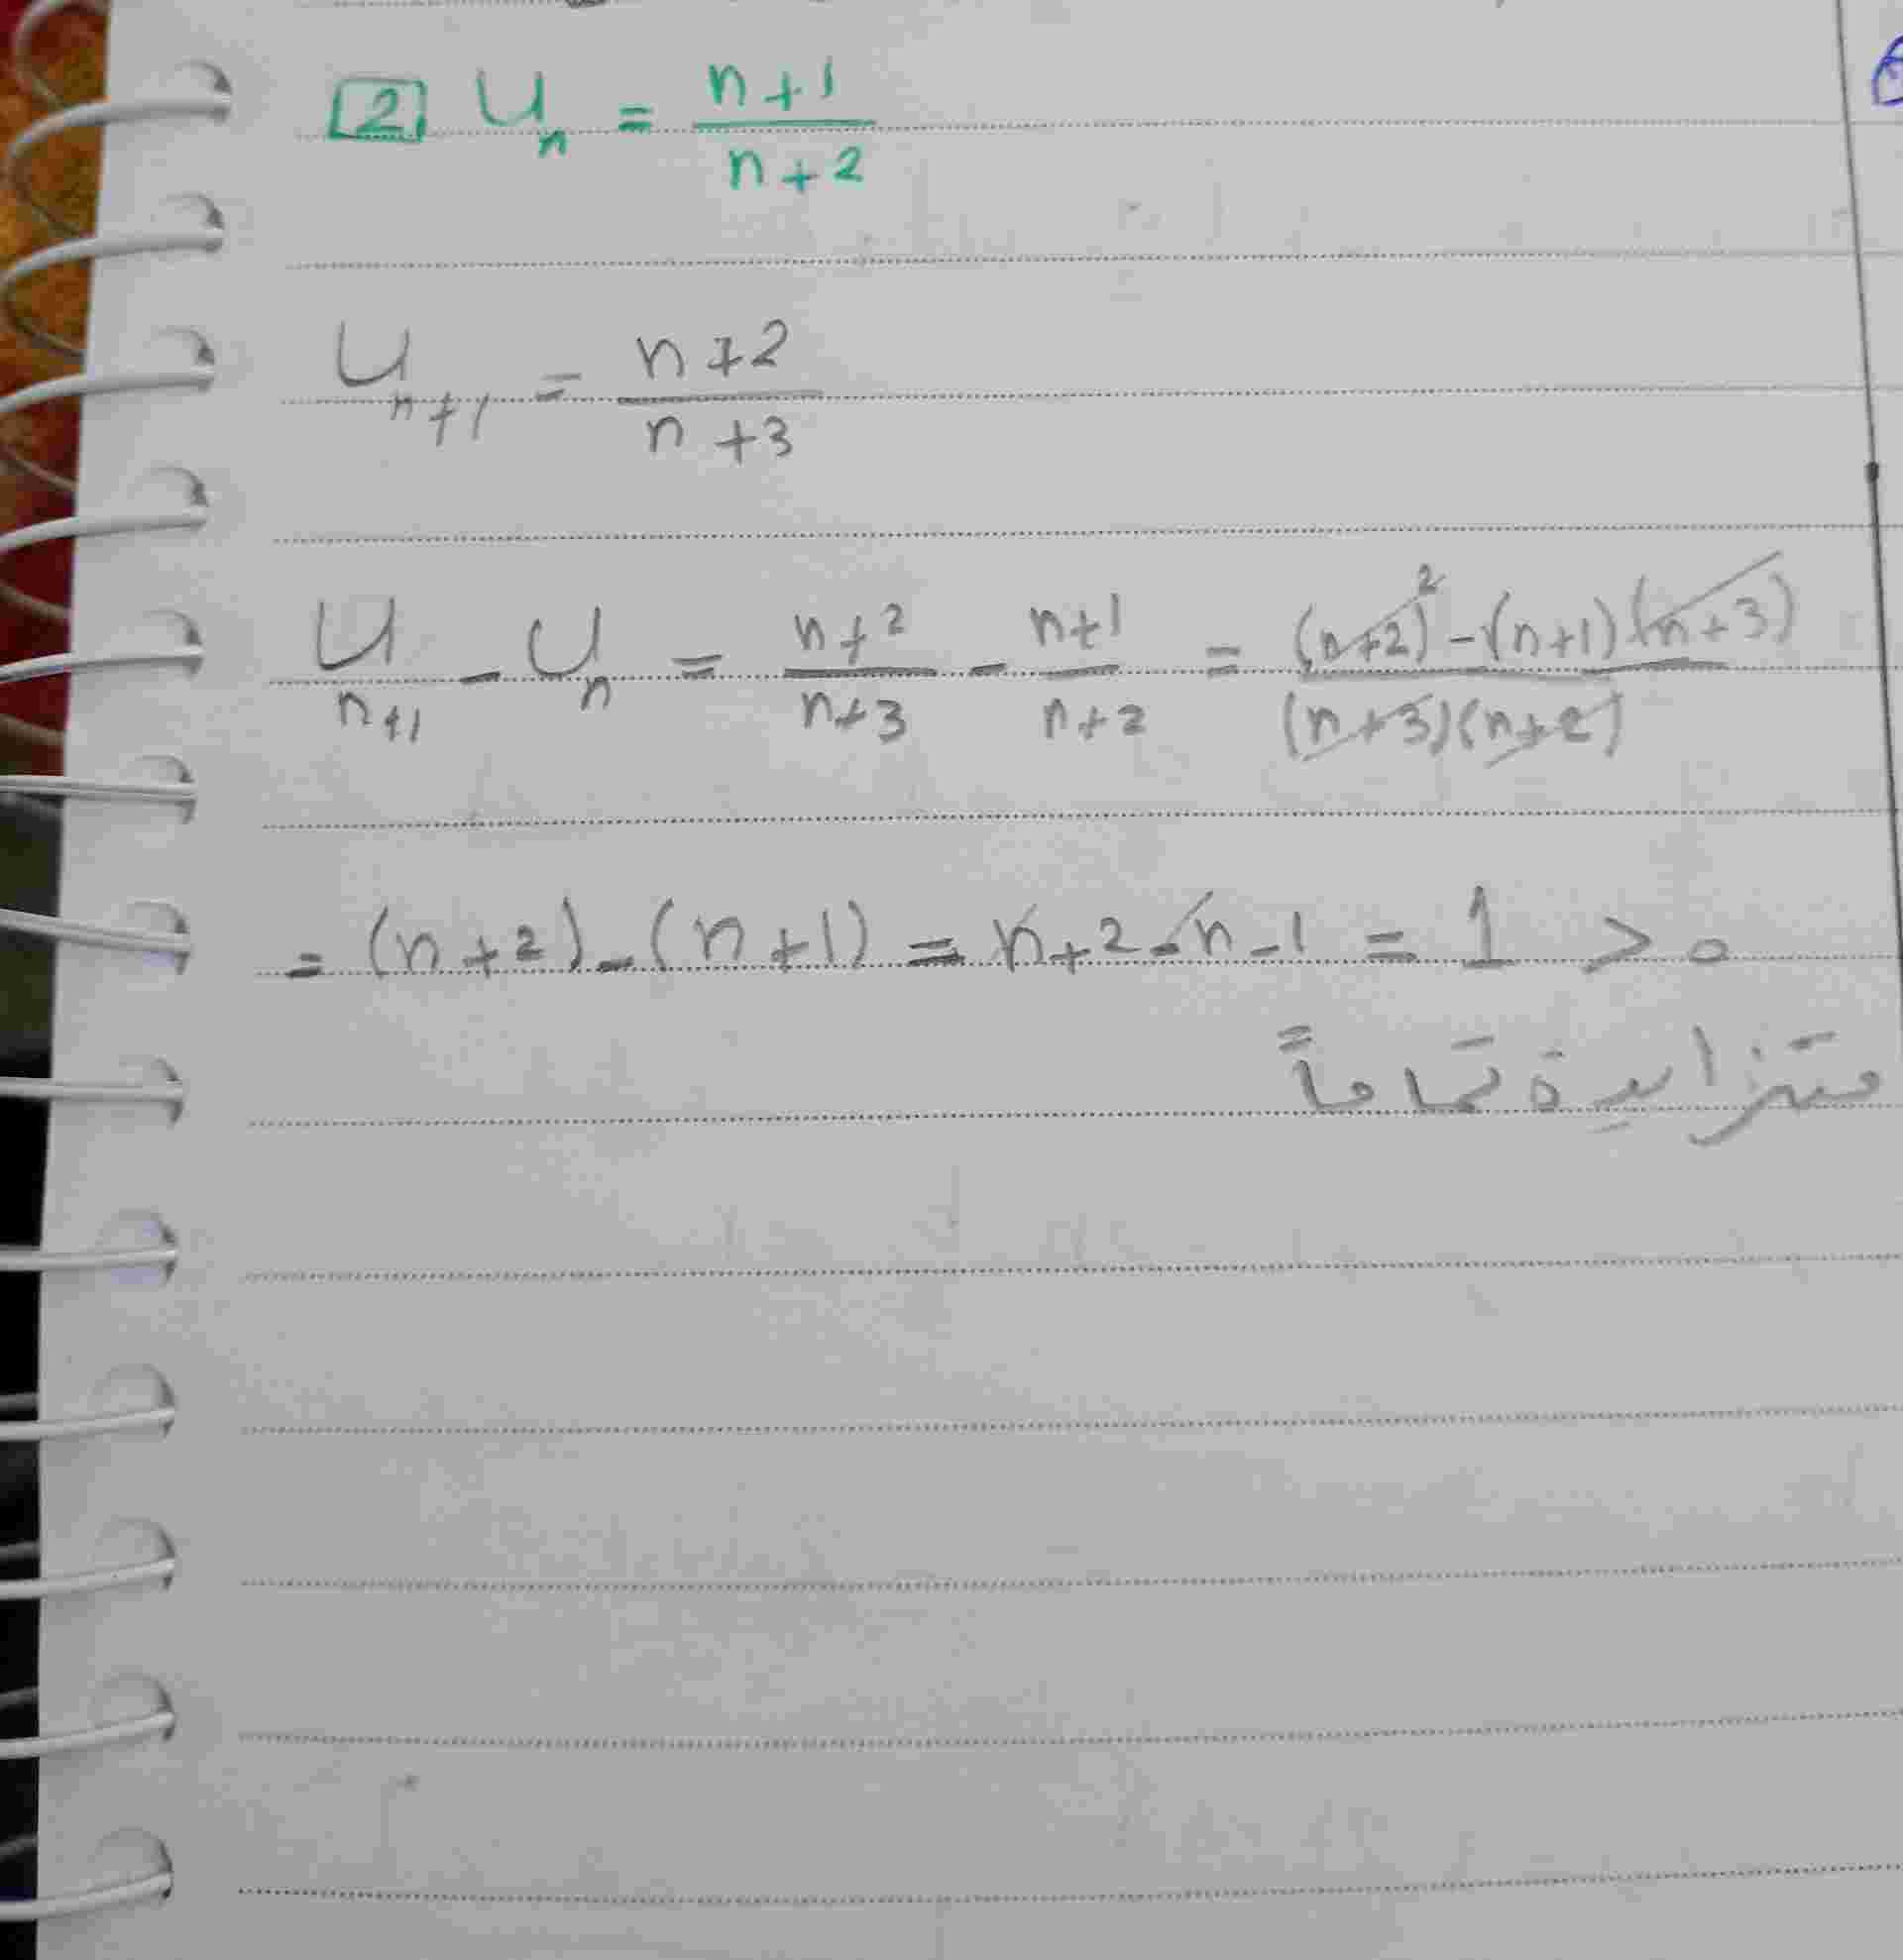 [2] Uₙ = (n+1)/(n+2)
Uₙ₊₁ = (n+2)/(n+3)
Uₙ₊₁ - Uₙ = (n+2)/(n+3) - (n+1)/(n+2) = ((n+2)² - (n+1)(n+3))/((n+3)(n+2))
= (n+2) - (n+1) = n+2-n-1 = 1 > 0
متزايدة تماماً